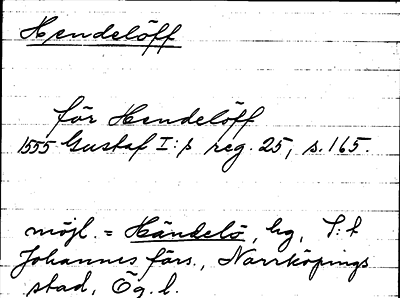 Hendelöff
för Hendelöff
1555 Gustaf I:s reg. 25, s. 165.
möjl. = Händelö, hg, S:t
Johannes förs., Norrköpings
stad, Ög. l.